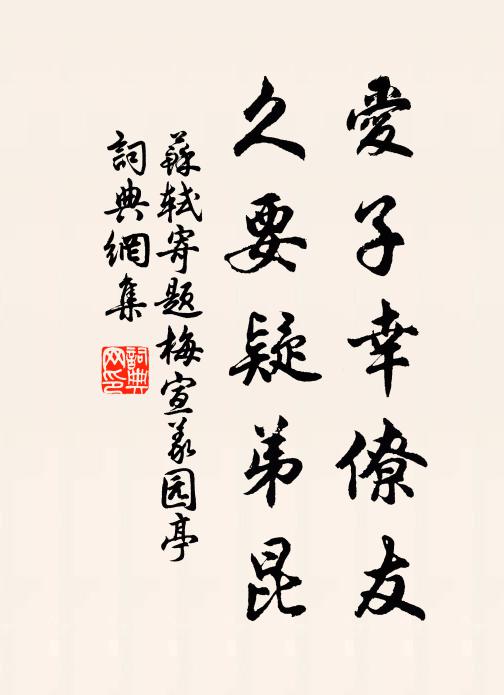 愛子幸僚友
久要疑弟昆
蘇軾寄題梅宣義园亭
詞典網集
詞典
网印